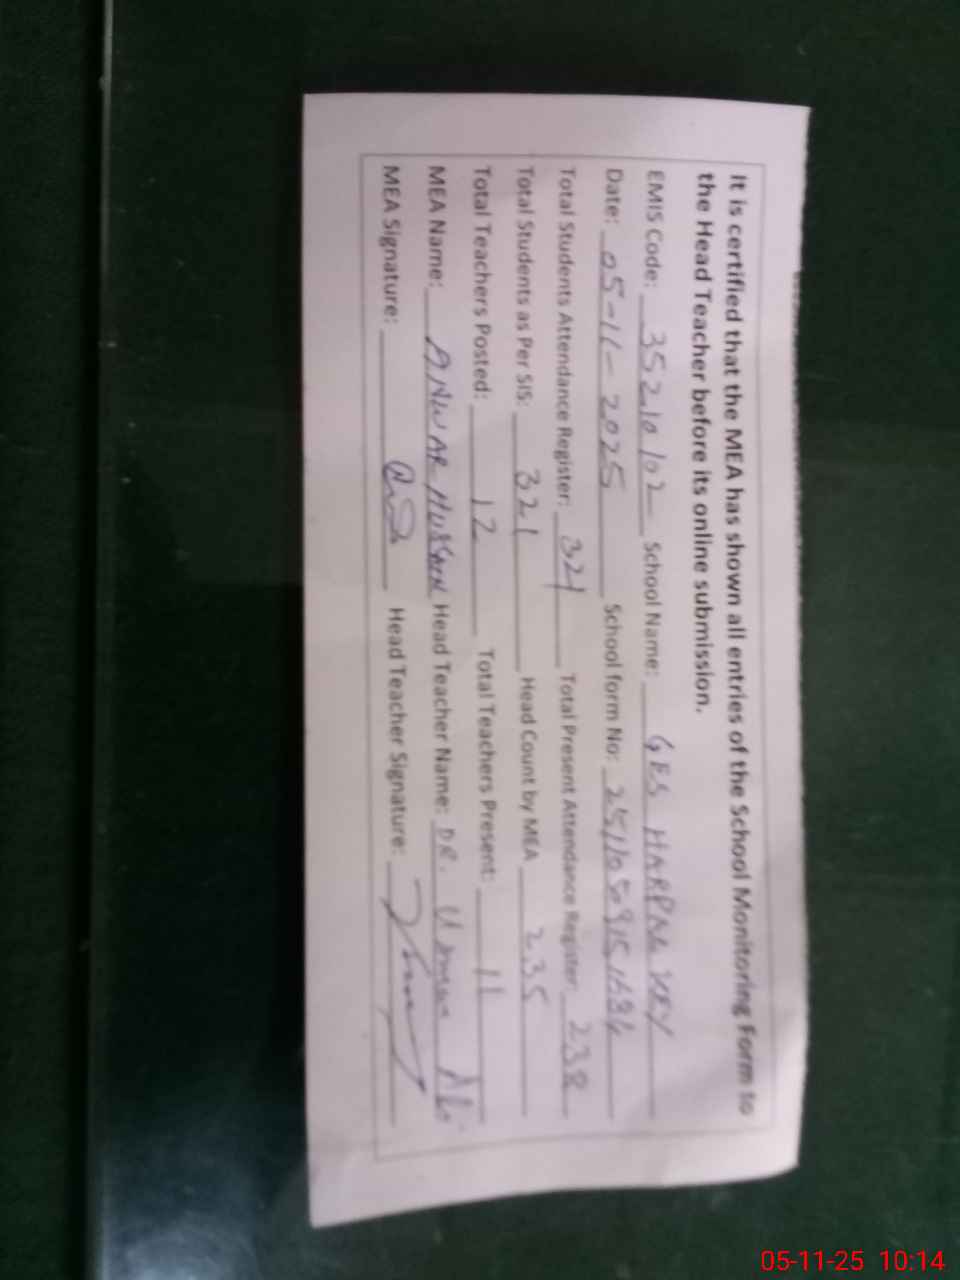 It is certified that the MEA has shown all entries of the School Monitoring Form to
the Head Teacher before its online submission.
EMIS Code: 35210102 School Name: GES HARPAL KEY
Date: 05-11-2025 School form No:
Total Students Attendance Register: 321 Total Present Attendance Register 238
Total Students as Per SIS: 321 Head Count by MEA 235
Total Teachers Posted: 12 Total Teachers Present: 11
MEA Name: ANWAR HUSSAIN Head Teacher Name: DR. Usman Ali
MEA Signature: Head Teacher Signature:
05-11-25 10:14